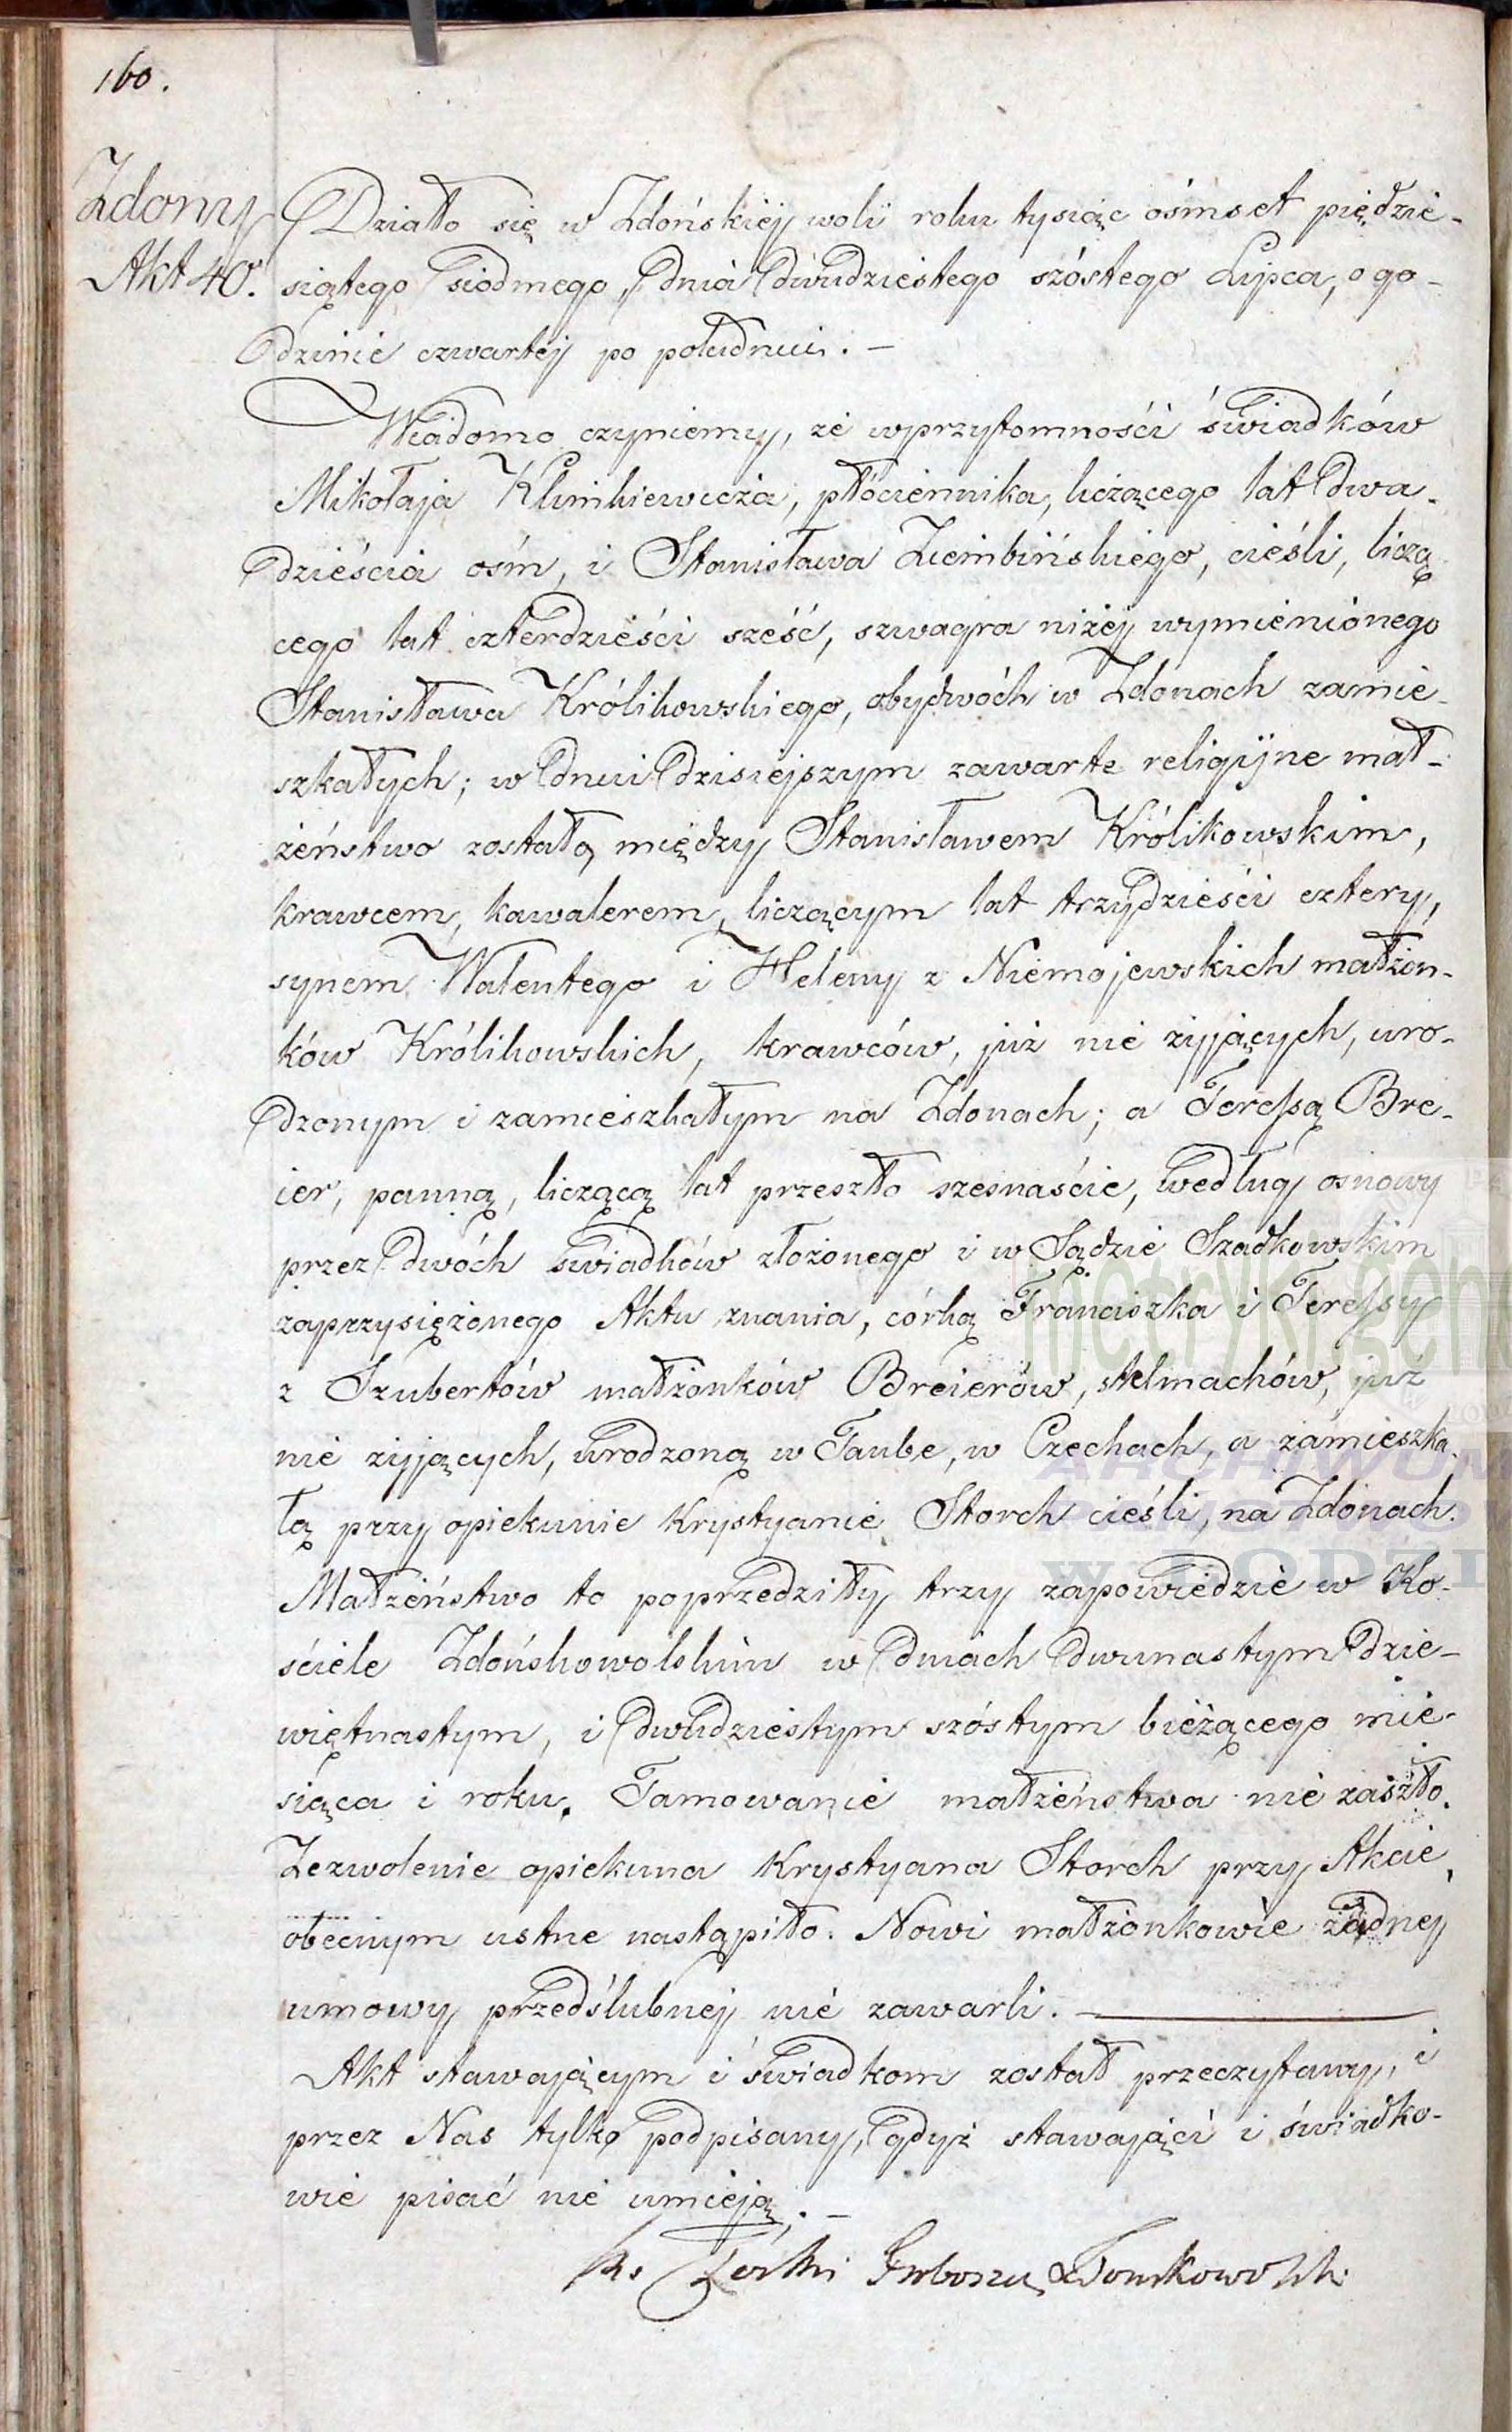 160.
Zdony
Akt 40.
Działo się w Zdońskiéj woli roku tysiąc óśmset pięдzie-
siątego siódmego, dnia dwudziestego szóstego Lipca, o go-
dzinie czwartéj po południu. —
Wiadomo czyniemy, że wprzytomności świadków
Mikołaja Klimkiewicza, płóciennika, liczącego lat dwa-
dzieścia ośm, i Stanisława Ziembińskiego, cieśli, liczą-
cego lat czterdzieści sześć, szwagra niżéj wymienionego
Stanisława Królikowskiego, obydwóch w Zdonach zamie-
szkałych; w dniu dzisiejszym zawarte religijne mał-
żeństwo zostało, między Stanisławem Królikowskim,
krawcem, kawalerem, liczącym lat trzydzieści cztery,
synem Walentego i Heleny z Niemojewskich małżon-
ków Królikowskich, krawców, już nie żyjących, uro-
dzonym i zamieszkałym na Zdonach; a Teressą Bre-
ier, panną, liczącą lat przeszło szesnaście, według osnowy
przez dwóch świadków złożonego i w Sądzie Szadkowskim
zaprzysiężonego Aktu znania, córką Franciszka i Teressy
z Szubertów małżonków Breierów, stelmachów, już
nie żyjących, urodzoną w Taube, w Czechach, a zamieszka-
łą przy opiekunie Krystyanie Storch cieśli, na Zdonach.
Małżeństwo to poprzedziły trzy zapowiedzie w Ko-
ściele Zdońskowolskim w dniach dwunastym dzie-
więtnastym, i dwudziestym szóstym bieżącego mie-
siąca i roku. Tamowanie małżeństwa nie zaszło.
Zezwolenie opiekuna Krystyana Storch przy Akcie,
obecnym ustne nastąpiło. Nowi małżonkowie żadnej
umowy przedślubnej nie zawarli. —
Akt stawającym i świadkom został przeczytany, i
przez Nas tylko podpisany, gdyż stawający i świadko-
wie pisać nie umieją. —
metryki.gen
ARCHIWUM
w ŁODZI